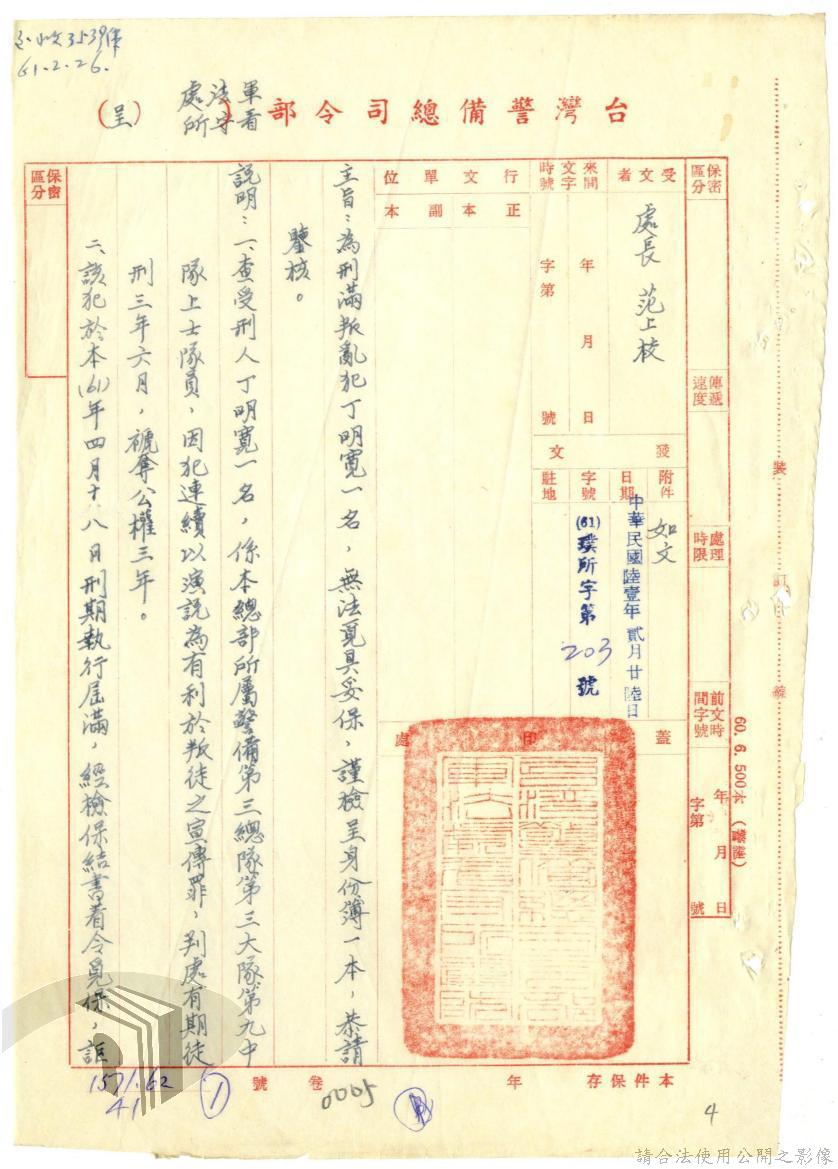 呈收3539號
61.2.26.
台灣警備總司令部
軍法處
看守所
(呈)
保密區分
傳遞速度
處理時限
前文時間字號
年 月 日
字第 號
受文者
處長 范上校
來文時間字號
年 月 日
字第 號
發文
附件
如文
日期
中華民國陸壹年貳月廿陸日
字號
(61)璞所字第203號
駐地
行文單位
正本
副本
蓋印處
主旨:為刑滿叛亂犯丁明寬一名,無法覓具妥保,謹檢呈身份簿一本,恭請
鑒核。
說明:一、查受刑人丁明寬一名,係本總部所屬警備第三總隊第三大隊第九中
隊上士隊員,因犯連續以演說為有利於叛徒之宣傳罪,判處有期徒
刑三年六月,褫奪公權三年。
二、該犯於本(61)年四月十八日刑期執行屆滿,經檢保結書着令覓保,詎
保密區分
本件保存 年
卷 號
0005
1
1571.62
41
4
裝
訂
線
60. 6. 500本
請合法使用公開之影像